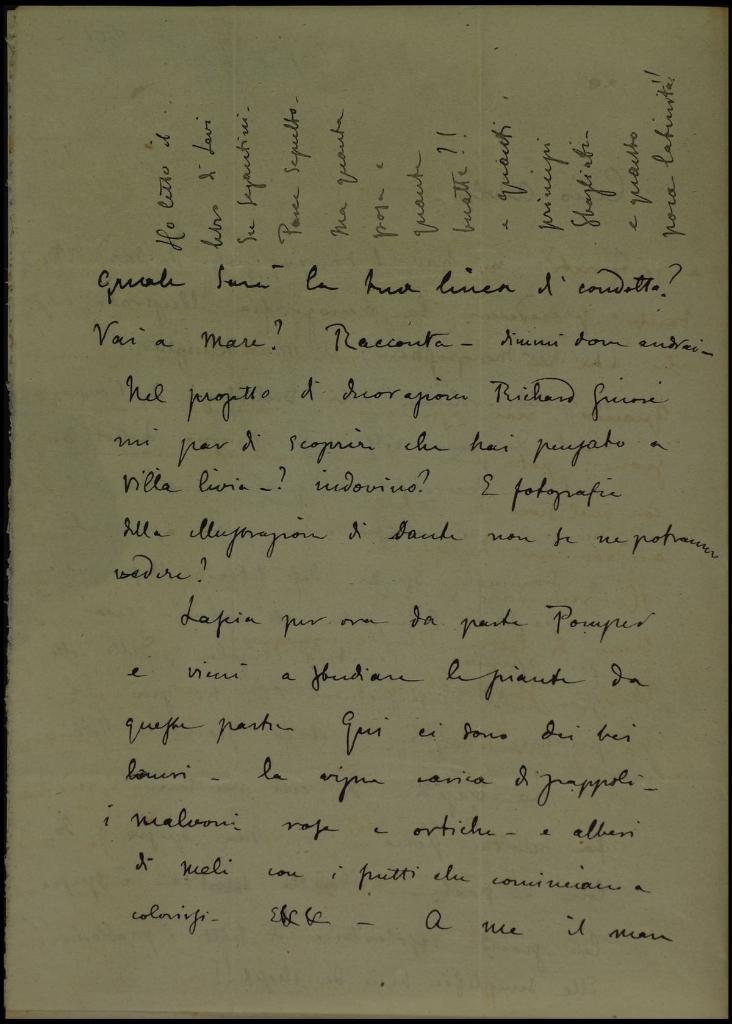 Ho letto il
libro di Levi
su Segantini-
Pareva Sepolto-
Ma quanta
posa e
quante
buatte?!
e quanti
principi
sbagliati-
e quanto
poca latinità!!
quale sarà la tua linea di condotta?
Vai a mare? Racconta - dimmi dove andrai -
Nel progetto di decorazione Richard Ginori
mi par di scoprire che hai pensato a
Villa livia -? indovino? E fotografie
della illustrazione di Dante non se ne potranno
vedere?
Lascia per ora da parte Pompei
e vieni a studiare le piante da
queste parti. Qui ci sono dei bei
lauri - la vigna carica di grappoli -
i malvoni rosa e ortiche - e alberi
di meli con i frutti che cominciano a
colorirsi - - A me il mare